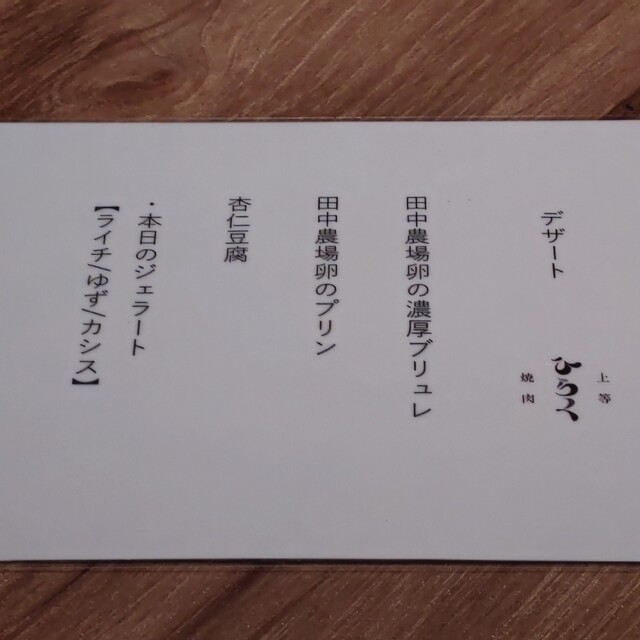 デザート
上等
ふらく
焼肉
田中農場卵の濃厚ブリュレ
田中農場卵のプリン
杏仁豆腐
・本日のジェラート
【ライチ/ゆず/カシス】